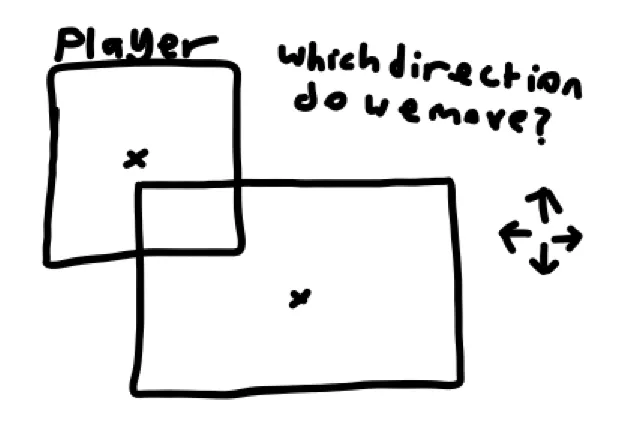 Player
which direction
do we move?